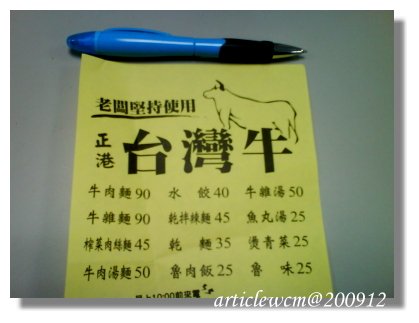 老闆堅持使用
正港 台灣牛
牛肉麵90 水餃40 牛雜湯50
牛雜麵90 乾拌辣麵45 魚丸湯25
榨菜肉絲麵45 乾麵35 燙青菜25
牛肉湯麵50 魯肉飯25 魯味25
早上10:00前來電
articlewcm@200912